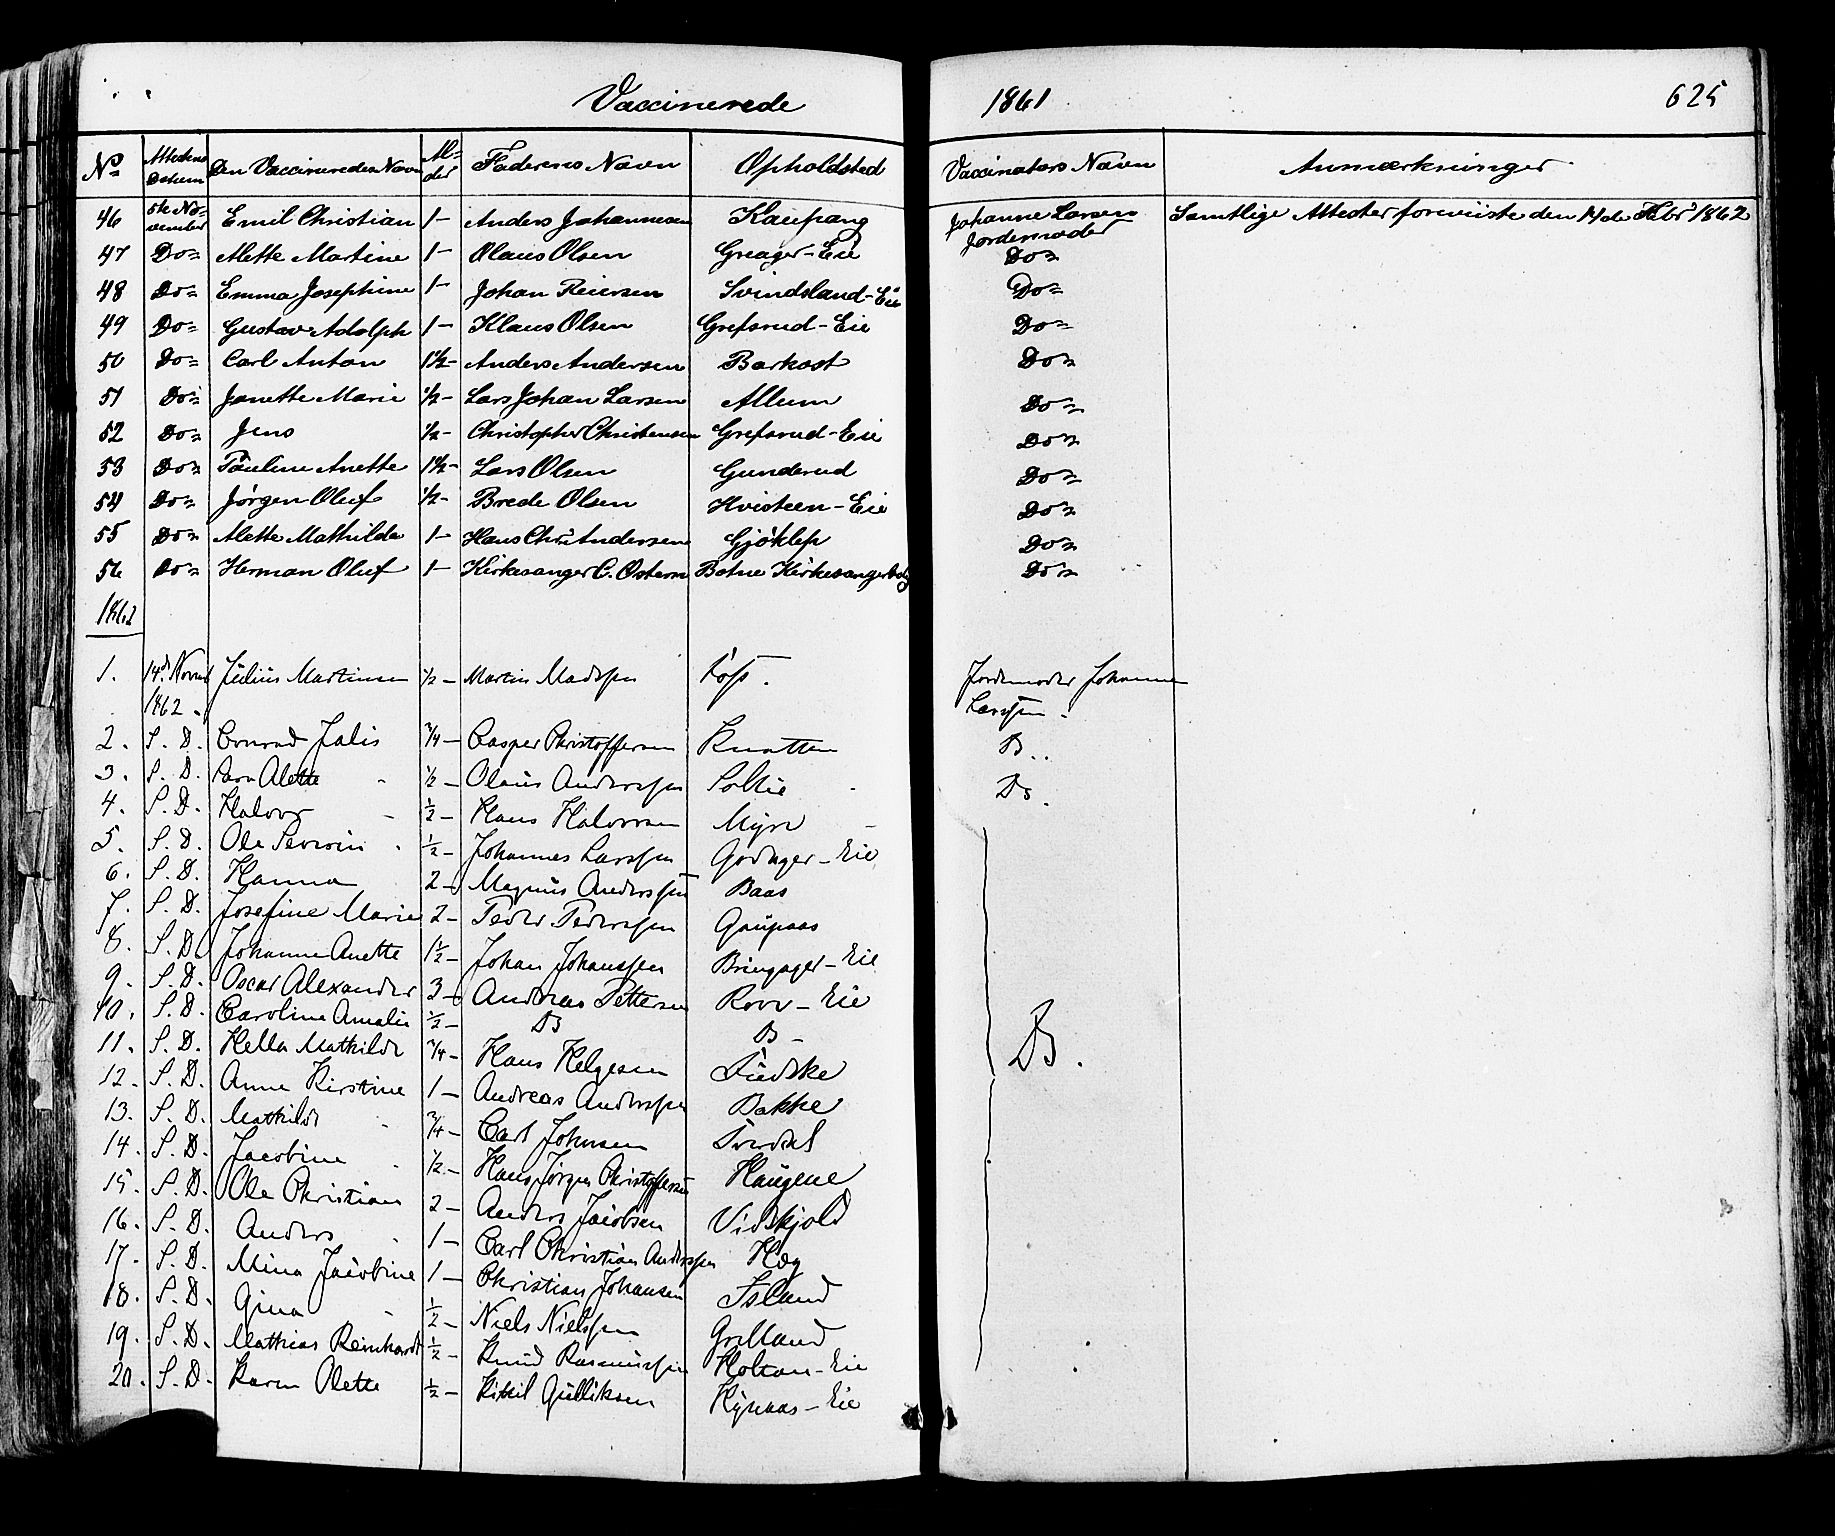 Vaccinerede 1861 625
No Attestens Datum Den Vaccineredes Navn Al- der Faderens Navn Opholdsted Vaccinators Navn Anmærkninger
46 5te No- vember Emil Christian 1- Anders Johannesen Kaupang Johanne Larsen Jordemoder Samtlige Attester foreviiste den 14de Febr 1862
47 Do= Alette Martine 1- Olaus Olsen Greager-Eie Do=
48 Do= Emma Josephine 1- Johan Reiersen Svindsland-Eie Do=
49 Do= Gustav Adolph 1- Klaus Olsen Grefsrud-Eie Do=
50 Do= Carl Anton 1½- Anders Andersen Barkost Do=
51 Do= Janette Marie ½- Lars Johan Larsen Allum Do=
52 Do= Jens ½- Christopher Christensen Grefsrud-Eie Do=
53 Do= Pauline Anette 1½- Lars Olsen Gunderud Do=
54 Do= Jørgen Oluf ½- Brede Olsen Hvisteen-Eie Do=
55 Do= Alette Mathilde 1- Hans Chr: Andersen Gjøklep Do=
56 Do= Herman Oluf 1- Kirkesanger C. Botne Kirkesangerbolig Do=
1862
1. 14d Novmb 1862 - Julius Martinsen ½- Martin Madssen Jordemoder Johanne Larssen.
2. S. D. Conrad Julis ¾- Casper Christoffersen Knatten Do.
3. S. D. Alette ½- Olaus Anderssen Solлie Do.
4. S. D. Halvor ½- Hans Halvorsen Myre -
5. S. D. Ole Severin ½- Johannes Larssen Godager-Eie
6. S. D. Hanna 2- Magnus Anderssen Baas
7. S. D. Josefine Marie 2- Peder Pederssen Gaupaas
8. S. D. Johanne Anette 1½- Johan Johanssen Bringager-Eie
9. S. D. Oscar Alexander 3- Andreas Pettersen Rove-Eie
10. S. D. Caroline Amalie ½- Do Do - Do.
11. S. D. Hella Mathilde ¾- Hans Helgesen Fuedske
12. S. D. Anne Kirstine 1- Andreas Anderssen Bakke
13. S. D. Mathilde ¾- Carl Johnsen Tverdal
14. S. D. Jacobine ½- Hans Jørgen Christoffersen Haugene
15. S. D. Ole Christian 2- Anders Jacobsen Vidskjold
16. S. D. Anders 1- Carl Christian Anderssen Hæg
17. S. D. Mina Jacobine 1- Christian Johansen Island
18. S. D. Gina ½- Niels Nielssen Grelland
19. S. D. Mathias Reinhardt ½- Knud Rasmussen Holtan-Eie
20. S. D. Karen Olette ½- Kittil Gulliksen Kynaas-Eie